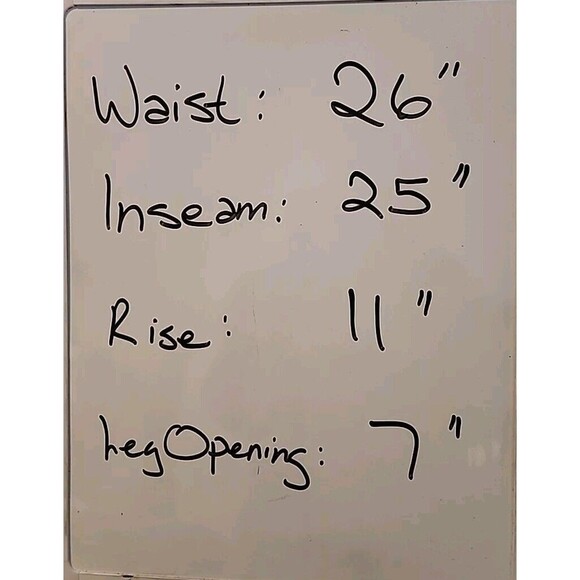 Waist: 26"
Inseam: 25"
Rise: 11"
Leg Opening: 7"